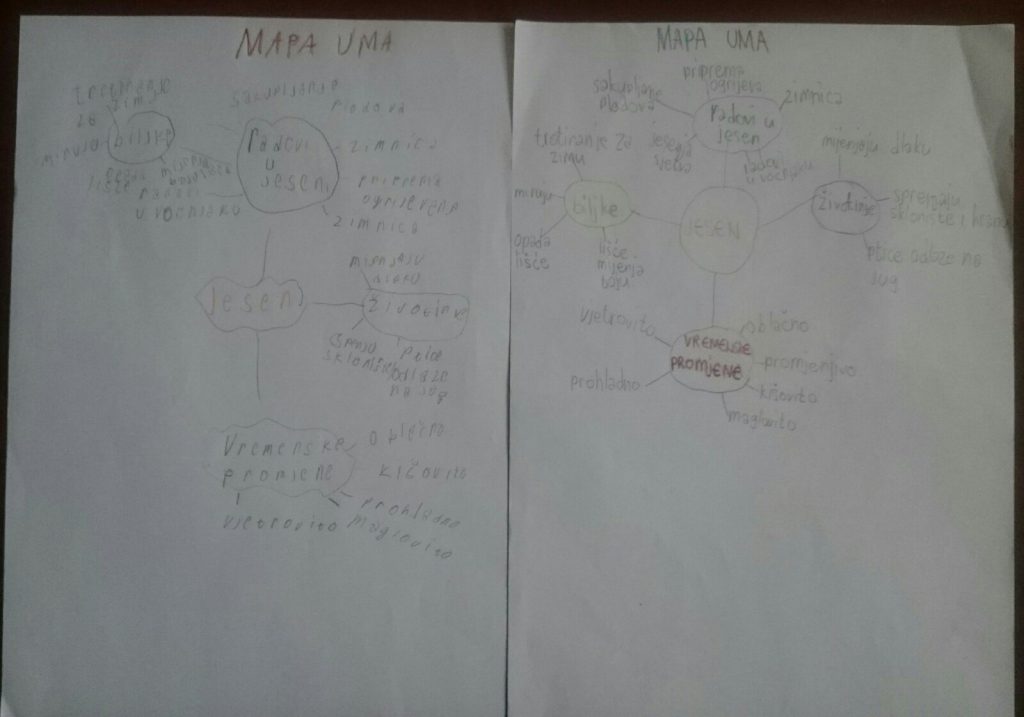 MAPA UMA
zimu
za
biljke
miruju
opada
lišće
radovi
u voćnjaku
sakupljanje
plodova
Radovi
u
jesen
zimnica
priprema
ogrijeva
zimnica
Jesen
mijenjaju
dlaku
Životinje
Ptice
odlaze
na jug
Vremenske
promjene
oblačno
kišovito
prohladno
maglovito
vjetrovito
MAPA UMA
sakupljanje
plodova
priprema
ogrijeva
zimnica
Radovi u
jesen
jesenja
sjetva
radovi
u voćnjaku
tretiranje za
zimu
miruju
biljke
opada
lišće
lišće
mijenja
boju
JESEN
mijenjaju dlaku
životinje
spremaju
sklonište i hranu
ptice odlaze na
jug
VREMENSKE
PROMJENE
vjetrovito
oblačno
promjenjivo
prohladno
kišovito
maglovito